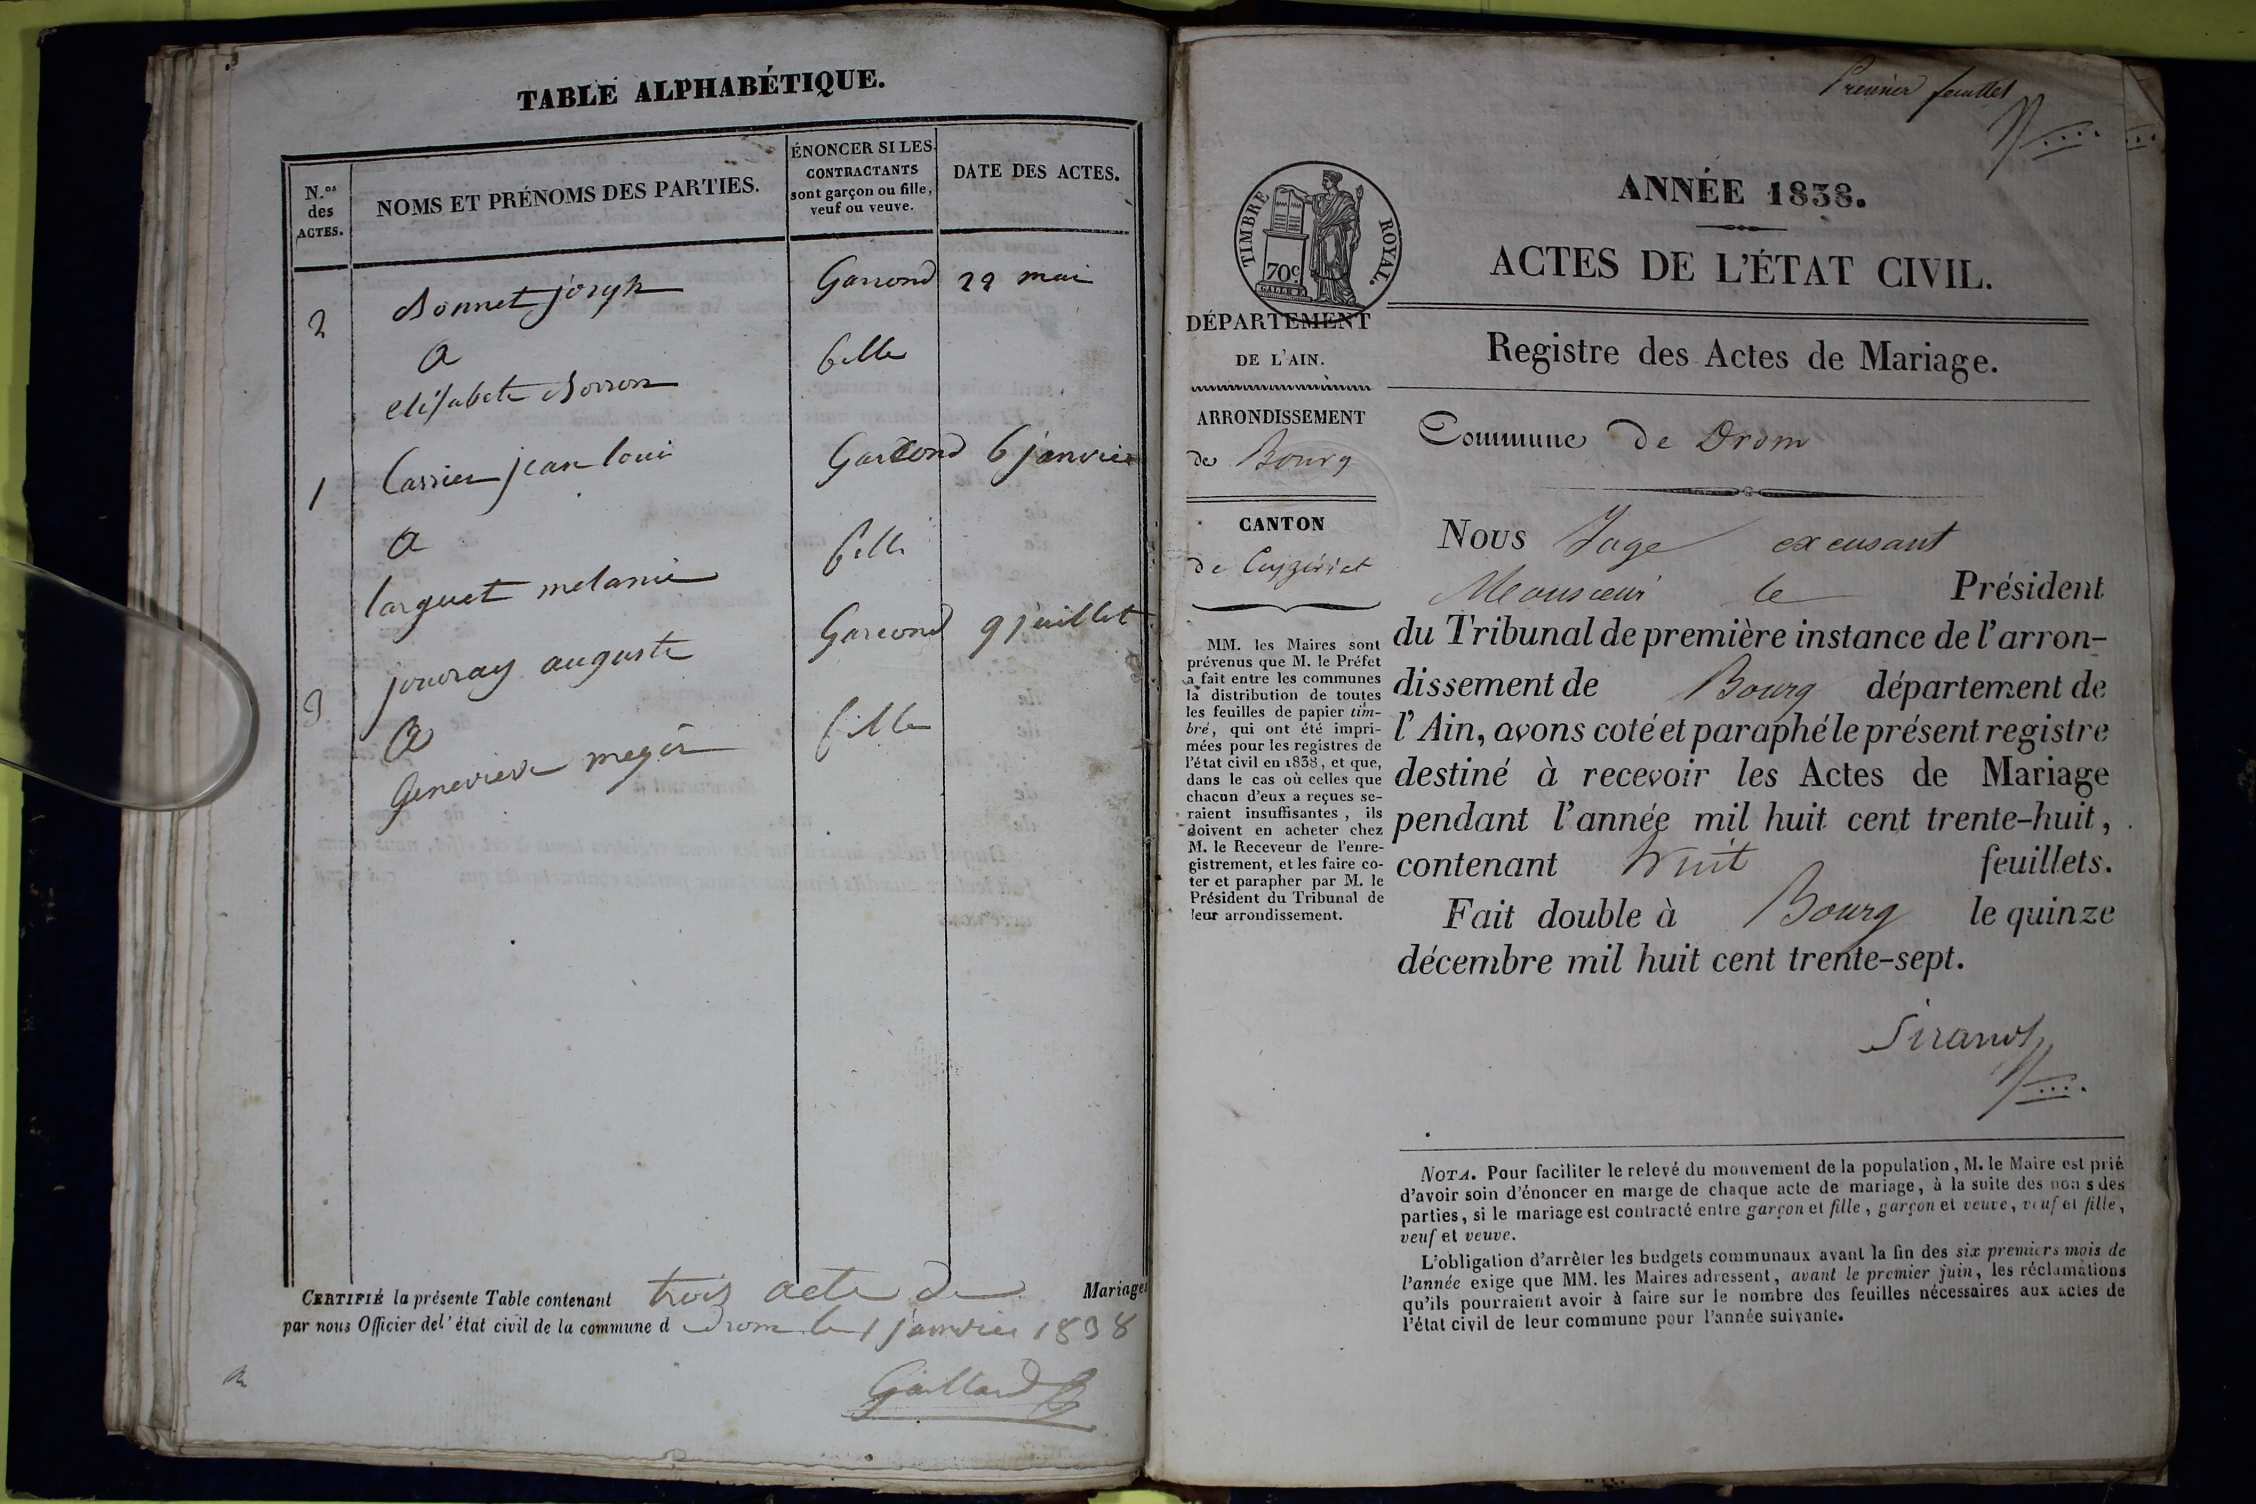 TABLE ALPHABÉTIQUE.
N.os des ACTES.
NOMS ET PRÉNOMS DES PARTIES.
ÉNONCER SI LES
CONTRACTANTS
sont garçon ou fille,
veuf ou veuve.
DATE DES ACTES.
2 Bonnet joseph Garcond 22 mai
a fille
elisabete
1 Carrier jean loui Garcond 6 janvier
a fille
larguet melanie
3 jouvray auguste Garcond 9 juillet
a fille
Genevieve
CERTIFIÉ la présente Table contenant trois acte de Mariages
par nous Officier de l'état civil de la commune d Drom le 1 janvier 1838
Gaillard
Premier feuillet
TIMBRE ROYAL.
70c
ANNÉE 1838.
ACTES DE L'ÉTAT CIVIL.
Registre des Actes de Mariage.
DÉPARTEMENT
DE L'AIN.
ARRONDISSEMENT
de Bourg
CANTON
de Ceyzériat
MM. les Maires sont
prévenus que M. le Préfet
a fait entre les communes
la distribution de toutes
les feuilles de papier tim-
bré, qui ont été impri-
mées pour les registres de
l'état civil en 1838, et que,
dans le cas où celles que
chacun d'eux a reçues se-
raient insuffisantes, ils
doivent en acheter chez
M. le Receveur de l'enre-
gistrement, et les faire co-
ter et parapher par M. le
Président du Tribunal de
leur arrondissement.
Commune de Drom
Nous Juge excusant
Monsieur le Président
du Tribunal de première instance de l'arron-
dissement de Bourg département de
l'Ain, avons coté et paraphé le présent registre
destiné à recevoir les Actes de Mariage
pendant l'année mil huit cent trente-huit,
contenant huit feuillets.
Fait double à Bourg le quinze
décembre mil huit cent trente-sept.
Sirand
NOTA. Pour faciliter le relevé du mouvement de la population, M. le Maire est prié
d'avoir soin d'énoncer en marge de chaque acte de mariage, à la suite des noms des
parties, si le mariage est contracté entre garçon et fille, garçon et veuve, veuf et fille,
veuf et veuve.
L'obligation d'arrêter les budgets communaux avant la fin des six premiers mois de
l'année exige que MM. les Maires adressent, avant le premier juin, les réclamations
qu'ils pourraient avoir à faire sur le nombre des feuilles nécessaires aux actes de
l'état civil de leur commune pour l'année suivante.